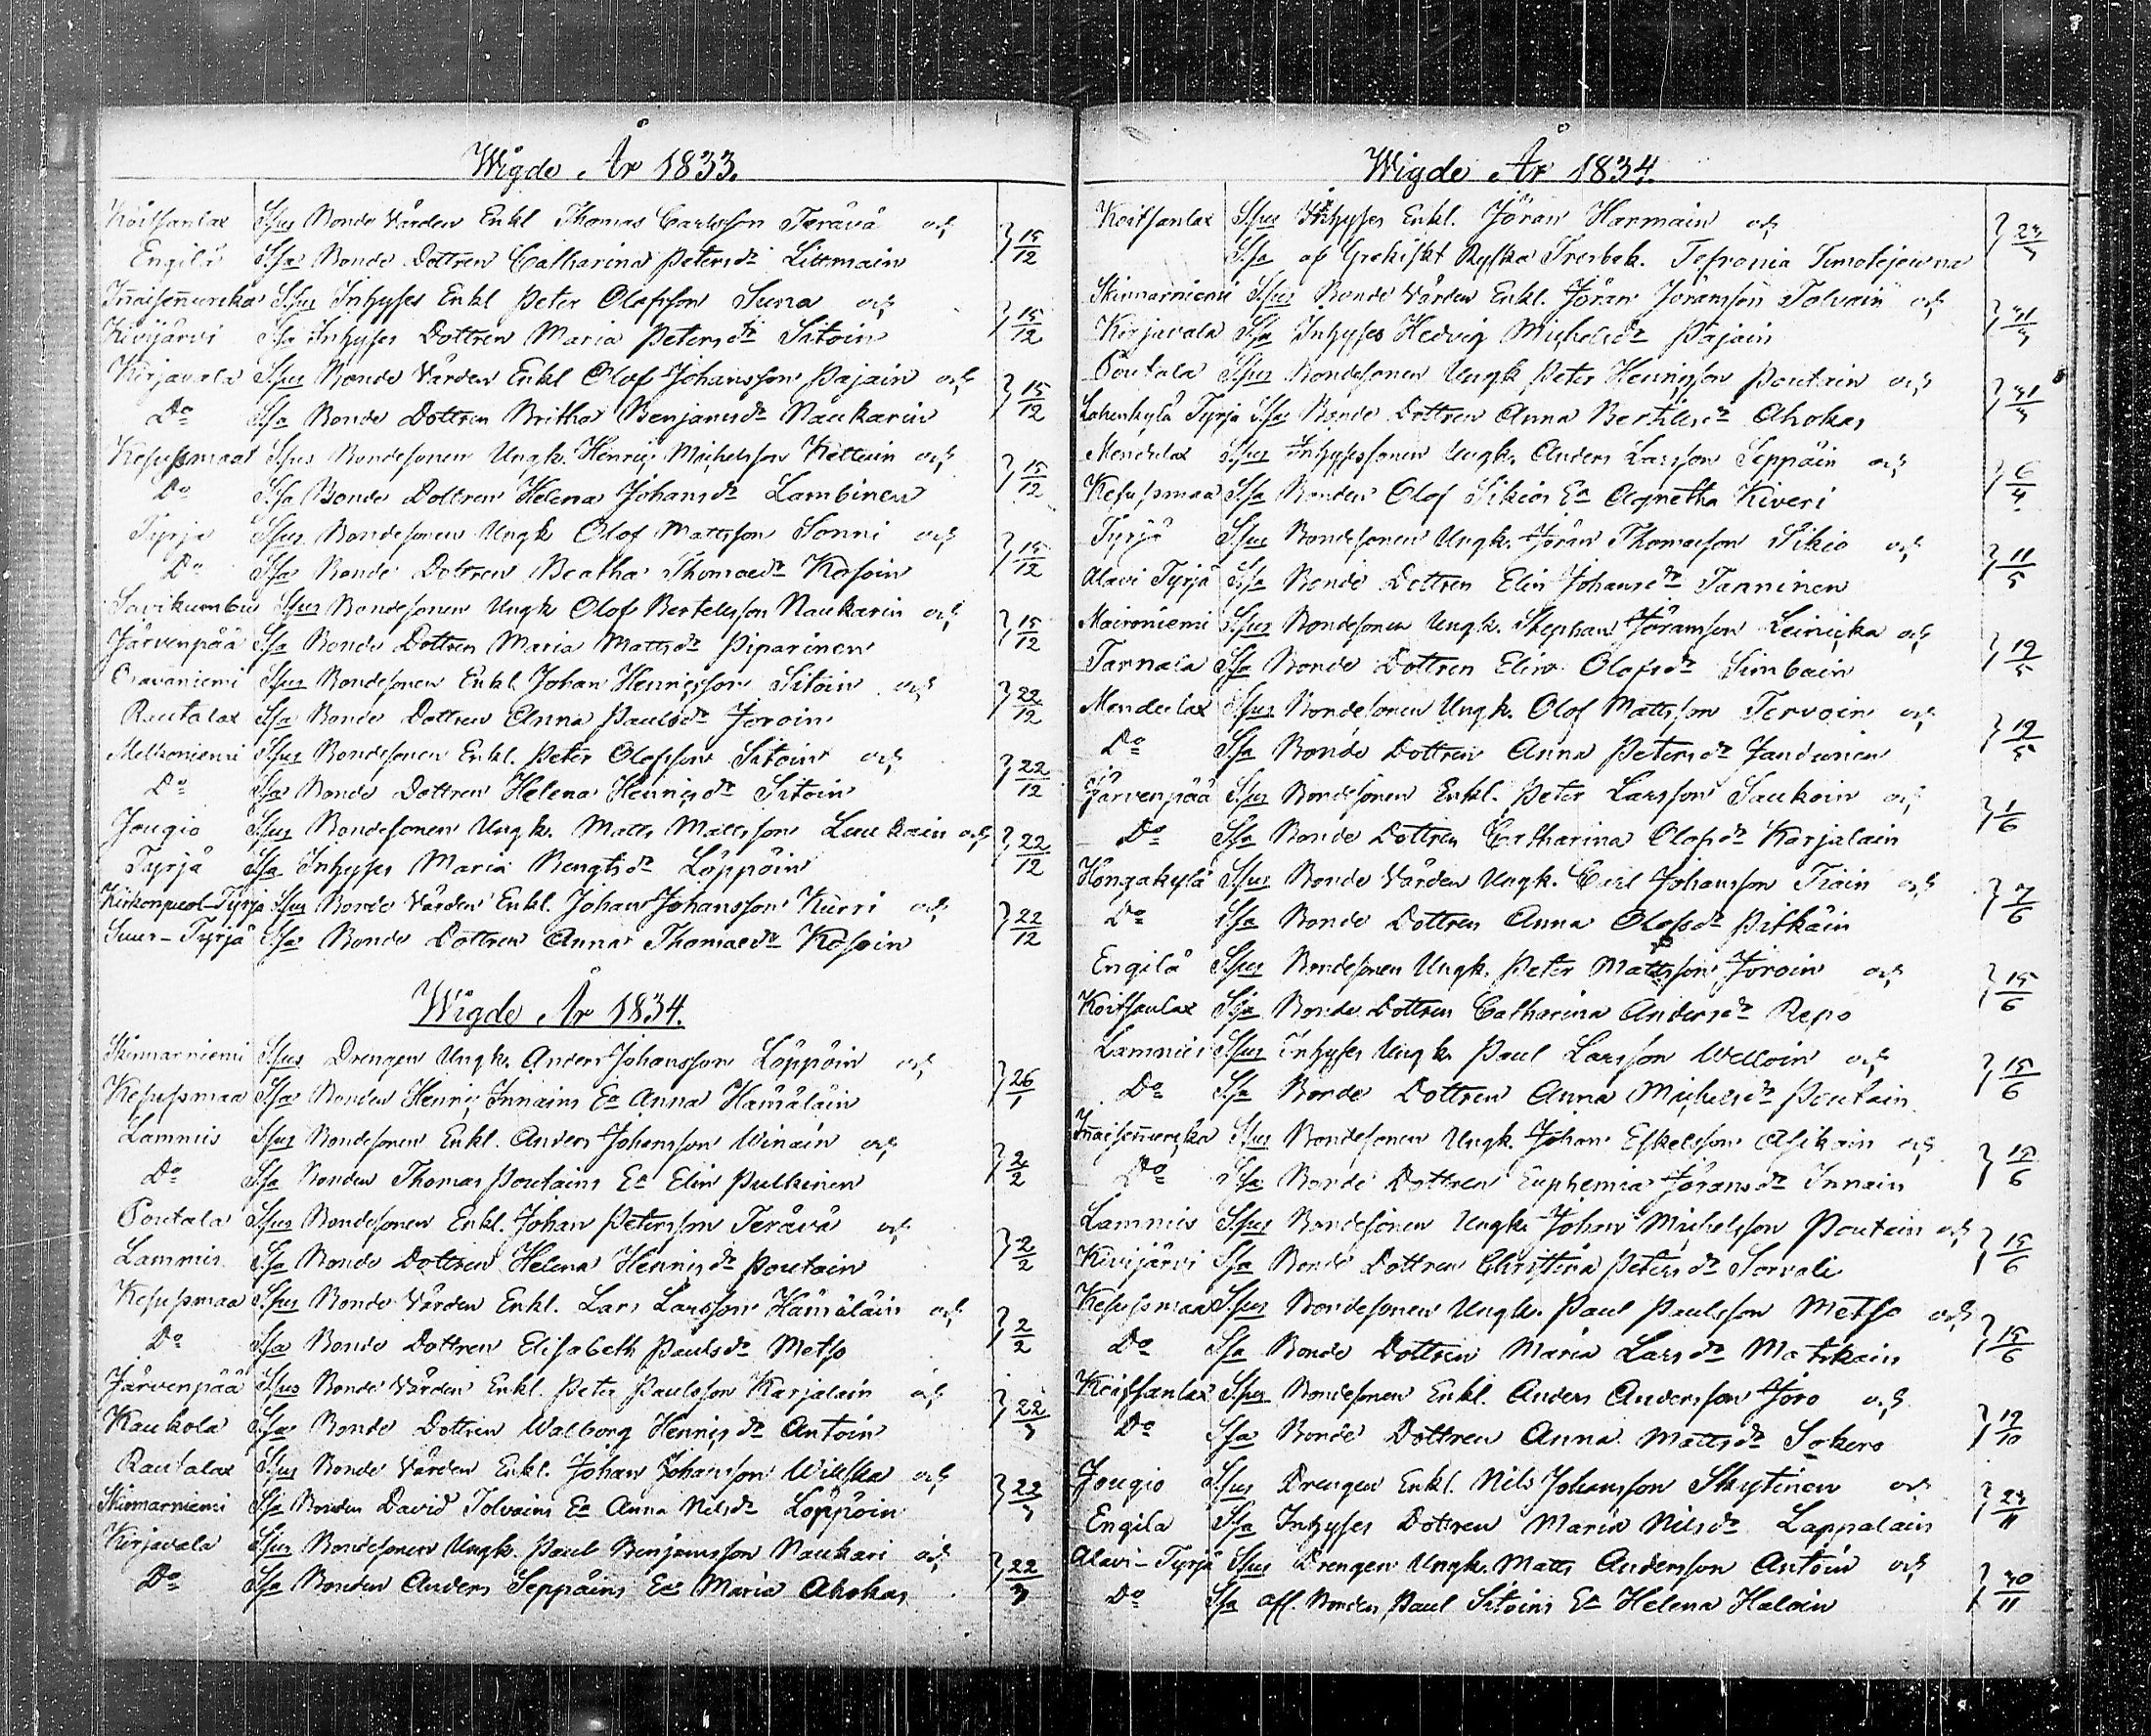 Wigde År 1833.
Koitsanlax Spus Bonde Vården Enkl Thomas Carlsson Terävä och } 15/12
Engilä Spa Bonde Dottren Catharina Petersdr Littmain
Innaisennurcka Spus Inhyses Enkl Peter Olofsson Suma och } 15/12
Kivijärvi Spa Inhyses Dottren Maria Petersdr Sitoin
Kirjavala Spus Bonde Vården Enkl Olof Johansson Pajain och } 15/12
Do Spa Bonde Dottren Britha Benjamsdr Naukarin
Kesusmaa Spus Bondesonen Ungk. Henric Michelsson Kettuin och } 15/12
Do Spa Bonde Dottren Helena Johansdr Lambinen
Tyrjä Spus Bondesonen Ungk Olof Mattsson Sonni och } 15/12
Do Spa Bonde Dottren Beatha Thomaedr Kosoin
Savikumbu Spus Bondesonen Ungk Olof Bertellsson Naukarin och } 15/12
Järvenpää Spa Bonde Dottren Maria Mattsdr Piparinen
Oravaniemi Spus Bondesonen Enkl. Johan Henricsson Sitoin och } 22/12
Rautalax Spa Bonde Dottren Anna Paulsdr Joroin
Melkoniemi Spus Bondesonen Enkl. Peter Olofsson Sitoin och } 22/12
Do Spa Bonde Dottren Helena Henricsdr Sitoin
Jougio Spus Bondesonen Ungk. Matts Mattsson Luukain och } 22/12
Tyrjä Spa Inhyses Maria Bengtsdr Löppöin
Kirkonpuol-Tyrjä Spus Bonde Vården Enkl. Johan Johansson Kurri och } 22/12
Suur-Tyrjä Spa Bonde Dottren Anna Thomaedr Kosoin
Wigde År 1834.
Skinnarniemi Spus Drengen Ungk. Anders Johansson Löppöin och } 26/1
Kesusmaa Spa Bonden Henric Innains Ea Anna Hämäläin
Lammis Spus Bondesonen Enkl. Anders Johansson Winain och } 2/2
Do Spa Bonden Thomas Poutains Ea Elin Pulkinen
Poutala Spus Bondesonen Enkl. Johan Petersson Terävä och } 2/2
Lammis Spa Bonde Dottren Helena Henricsdr Poutain
Kesusmaa Spus Bonde Vården Enkl. Lars Larsson Hämäläin och } 2/2
Do Spa Bonde Dottren Elisabeth Paulsdr Metso
Järvenpää Spus Bonde Vården Enkl. Peter Paulsson Karjalain och } 22/3
Kaukola Spa Bonde Dottren Walborg Henricsdr Antoin
Rautalax Spus Bonde Vården Enkl. Johan Johansson Willska och } 22/3
Skinnarniemi Spa Bonden David Tolvains Ea Anna Nilsdr Löppöin
Kirjavala Spus Bondesonen Ungk. Paul Benjamsson Naukari och } 22/3
Do Spa Bonden Anders Seppäins Ea Maria Ahokas
Wigde År 1834.
Koitsanlax Spus Inhyses Enkl. Jöran Harmain och } 23/3
Spa af Grekiskt Ryska Trosbek. Tefronia Timotejewna
Skinnarniemi Spus Bonde Vården Enkl. Jöran Jöransson Tolvain och } 31/3
Kirjavala Spa Inhyses Hedvig Michelsdr Pajain
Poutala Spus Bondesonen Ungk Peter Henricsson Poutain och } 31/3
Lahenkylä Tyrjä Spa Bonde Dottren Anna Bertilsdr Ahokas
Mendulax Spus Inhysessonen Ungk. Anders Larsson Seppäin och } 6/4
Kesusmaa Spa Bonden Olof Sikios Ea Agnetha Kiveri
Tyrjä Spus Bondesonen Ungk. Jöran Thomasson Sikio och } 11/5
Alavi Tyrjä Spa Bonde Dottren Elin Johansdr Tanninen
Moironiemi Spus Bondesonen Ungk. Stephan Jöransson Leinicka och } 19/5
Tarnala Spa Bonde Dottren Elin Olofsdr Simbain
Mendulax Spus Bondesonen Ungk. Olof Mattsson Tervoin och } 19/5
Do Spa Bonde Dottren Anna Petersdr Jandunen
Järvenpää Spus Bondesonen Enkl. Peter Larsson Saukoin och } 1/6
Do Spa Bonde Dottren Catharina Olofsdr Karjalain
Hongakylä Spus Bonde Vården Ungk. Carl Johansson Tiäin och } 7/6
Do Spa Bonde Dottren Anna Olofsdr Pitkäin
Engilä Spus Bondesonen Ungk. Peter Mattsson Joroin och } 15/6
Koitsanlax Spa Bonde Dottren Catharina Andersdr Repo
Lammis Spus Inhyses Ungk Paul Larsson Welloin och } 15/6
Do Spa Bonde Dottren Anna Michelsdr Poutain
Innaisennurcka Spus Bondesonen Ungk. Johan Eskelsson Asikain och } 15/6
Do Spa Bonde Dottren Euphemia Jöransdr Innain
Lammis Spus Bondesonen Ungk. Johan Michelsson Poutain och } 15/6
Kivijärvi Spa Bonde Dottren Christina Petersdr Sorvali
Kesusmaa Spus Bondesonen Ungk. Paul Paulsson Metso och } 15/6
Do Spa Bonde Dottren Maria Larsdr Matikain
Koitsanlax Spus Bondesonen Enkl. Anders Andersson Joro och } 19/10
Do Spa Bonde Dottren Anna Mattsdr Sokero
Jougio Spus Drengen Enkl. Nils Johansson Skytinen och } 23/11
Engila Spa Inhyses Dottren Maria Nilsdr Lappalain
Alavi-Tyrjä Spus Drengen Ungk. Matts Andersson Antoin och } 30/11
Do Spa afl. Bonden Paul Sitoins Ea Helena Haloin